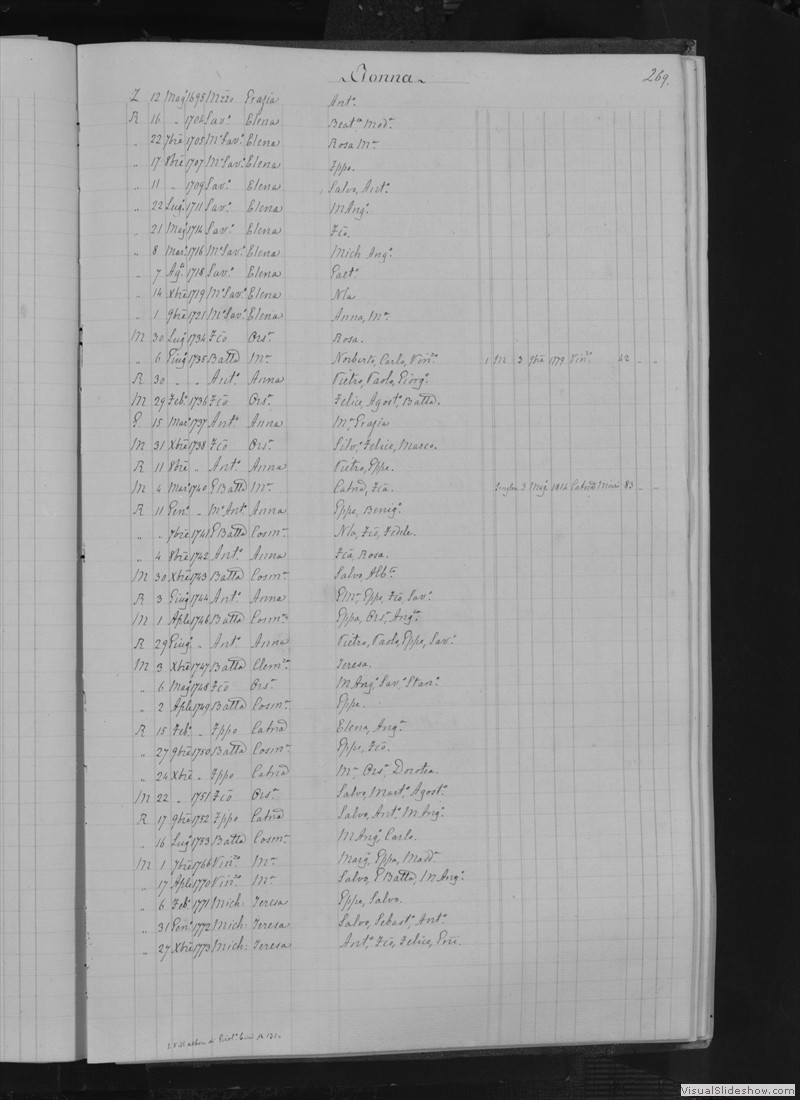 Bonna
269.
Z 12 Mag 1695 Mzzo Grazia Ant.ª
R 16 „ 1704 Sav.ª Elena Beat.ª Mad.ª
„ 22 7bre 1705 M.ª Sav.ª Elena Rosa M.ª
„ 17 8bre 1707 M.ª Sav.ª Elena Gppe.
„ 11 „ 1709 Sav.ª Elena Salvo, Ant.ª
„ 22 Lug. 1711 Sav.ª Elena M Ang.ª
„ 21 Mag. 1714 Sav.ª Elena Fcō.
„ 8 Mar. 1716 M.ª Sav.ª Elena Mich Ang.ª
„ 7 Ag.ª 1718 Sav.ª Elena Gaet.ª
„ 14 Xbre 1719 M.ª Sav.ª Elena Nla
„ 1 9bre 1721 M.ª Sav.ª Elena Anna, M.ª
M 30 Lug. 1734 Fcō Ors.ª Rosa.
„ 6 Giug. 1735 Batta M.ª Norberto, Carlo, Vin.º 1 M 3 7bre 1779 Vin.º 42 „ „
R 30 „ „ Ant.º Anna Pietro, Paolo, Giorg.º
M 29 Feb. 1736 Fcō Ors.ª Felice, Agost.º, Batta.
G 15 Mar. 1737 Ant.º Anna M.ª Grazia
M 31 Xbre 1738 Fcō Ors.ª Silv.º Felice, Marco.
R 11 8bre „ Ant.º Anna Pietro, Gppe.
M 4 Mar. 1740 G Batta M.ª Catnd, Fcā. 3 Mag. 1814 83 „ „
R 11 Gen. „ M.º Ant.º Anna Gppe, Benig.º
„ „ 7bre 1741 G Batta Cosm.ª Nlo, Fcō, Fedele.
„ 4 8bre 1742 Ant.º Anna Fcā, Rosa.
M 30 Xbre 1743 Batta Cosm.ª Salvo, Alb.ª
R 3 Giug. 1744 Ant.º Anna G M.ª, Gppe, Fcō, Sav.º
M 1 Aple 1746 Batta Cosm.ª Gppa, Ors.ª, Ang.ª
R 29 Giug. „ Ant.º Anna Pietro, Paolo, Gppe, Sav.º
M 3 Xbre 1747 Batta Clem.ª Teresa.
„ 6 Mag. 1748 Fcō Ors.ª M Ang.º Sav.º, Stan.º
„ 2 Aple 1749 Batta Cosm.ª Gppe.
R 15 Feb. „ Gppo Catnd Elena, Ang.ª
„ 27 9bre 1750 Batta Cosm.ª Gppe, Fcō.
„ 24 Xbre „ Gppo Catnd M.ª Ors.ª, Dorotea.
M 22 „ 1751 Fcō Ors.ª Salvo, Mart.º Agost.º
R 17 9bre 1752 Gppo Catnd Salvo, Ant.º M Ang.º
„ 16 Lug. 1753 Batta Cosm.ª M Ang.º, Carlo.
M 1 7bre 1766 Vin.º M.ª Marg., Gppa, Madd.ª
„ 17 Aple 1770 Vin.º M.ª Salvo, G Batta, M Ang.º
„ 6 Feb. 1771 Mich: Teresa Gppe, Salvo.
„ 31 Gen. 1772 Mich: Teresa Salvo, Sebast.º Ant.º
„ 27 Xbre 1773 Mich: Teresa Ant.º, Fcō, Felice,
VisualSlideshow.com